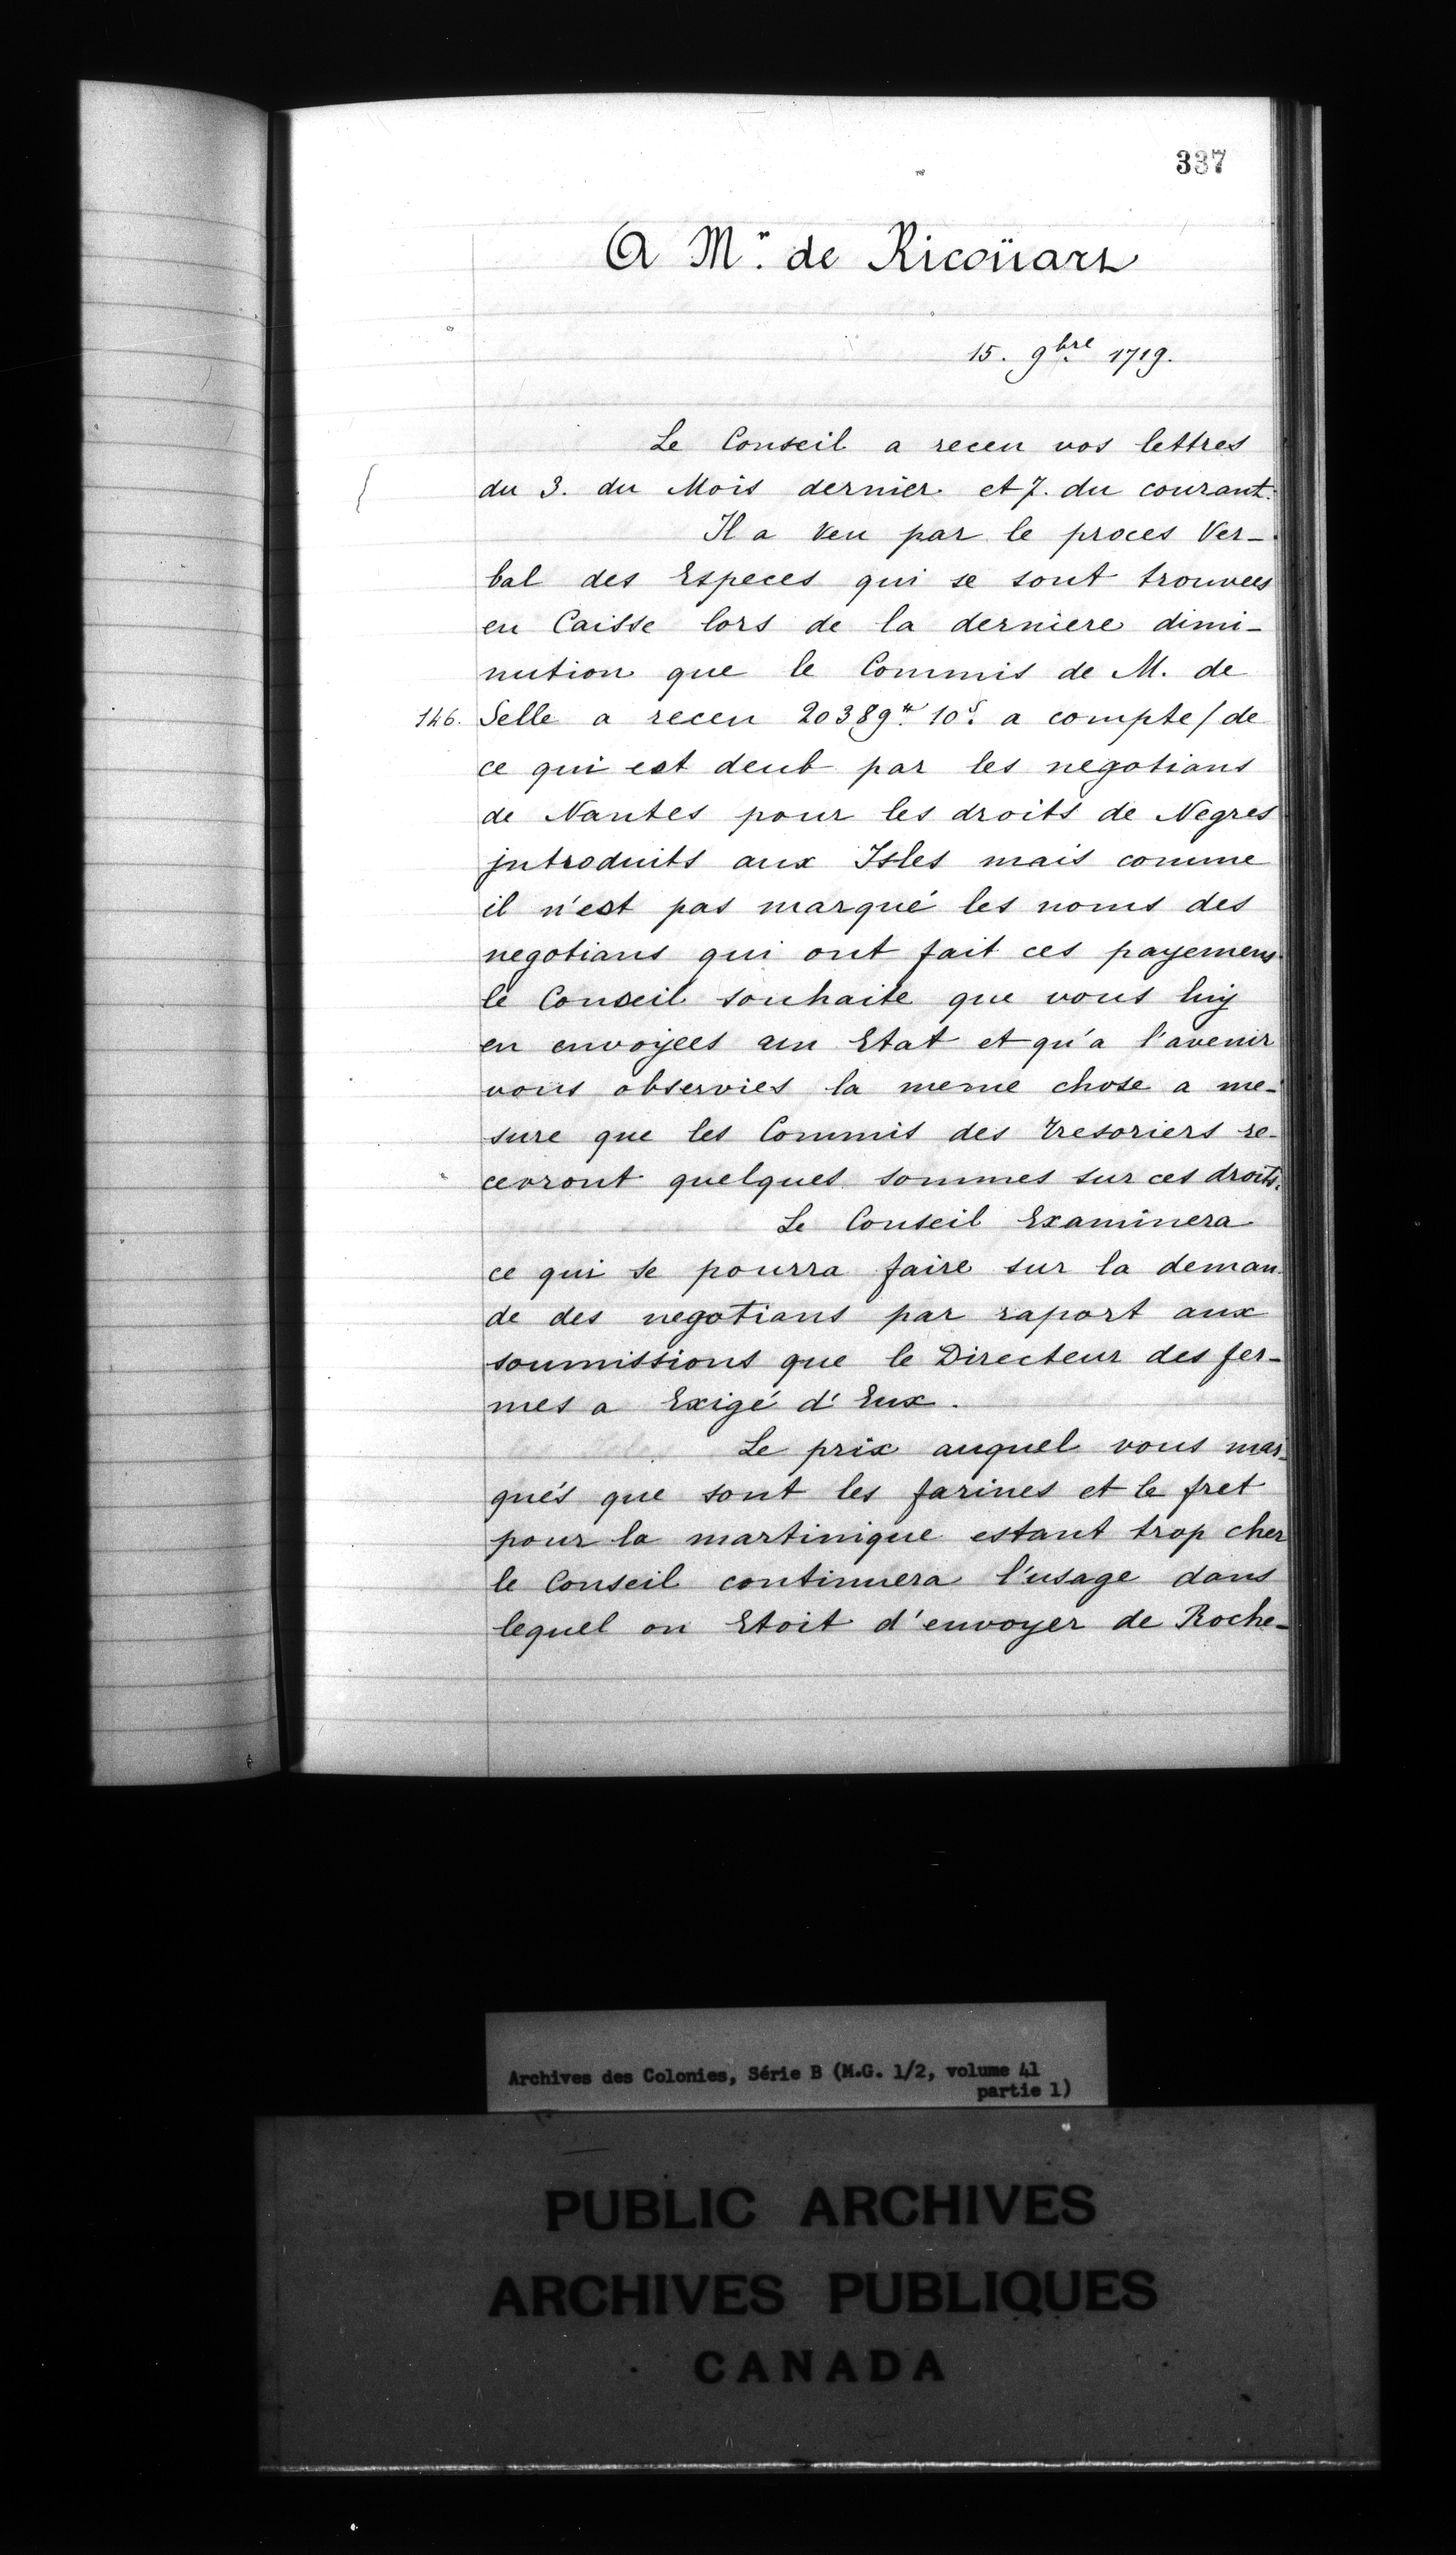 337
A Mr. de Ricoüart
15. 9bre 1719.
Le Conseil a receu vos lettres
du 3. du Mois dernier et 7. du courant.
Il a veu par le proces Ver-
bal des Especes qui se sont trouvees
en Caisse lors de la derniere dimi-
nution que le Commis de M. de
146. Selle a receu 20389# 10s. a compte/de
ce qui est deub par les negotians
de Nantes pour les droits de Negres
jntroduits aux Isles mais comme
il n'est pas marqué les noms des
negotians qui ont fait ces payemens
le Conseil souhaite que vous luy
en envoÿees un Etat et qu'a l'avenir
vous observies la meme chose a me-
sure que les Commis des tresoriers re-
cevront quelques sommes sur ces droits.
Le Conseil Examinera
ce qui se pourra faire sur la deman-
de des negotians par raport aux
soumissions que le Directeur des fer-
mes a Exigé d'Eux.
Le prix auquel vous mar-
qués que sont les farines et le fret
pour la martinique estant trop cher
le Conseil continuera l'usage dans
lequel on Etoit d'envoyer de Roche-
Archives des Colonies, Série B (M.G. 1/2, volume 41
partie 1)
PUBLIC ARCHIVES
ARCHIVES PUBLIQUES
CANADA